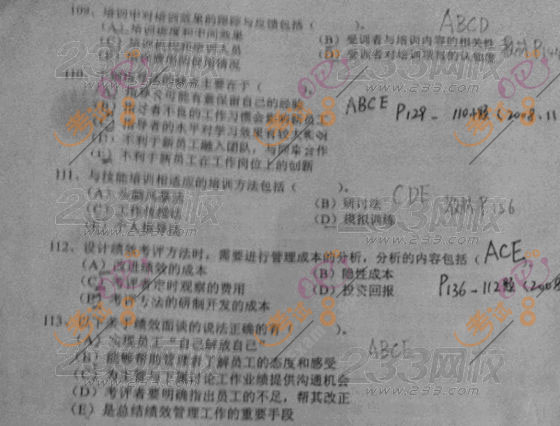 109、培训中对培训效果的跟踪与反馈包括（ ）。 ABCD
（A）培训进度和中间效果 （B）受训者与培训内容的相关性
培训机构和培训人员 （D）受训者对培训项目的认知度 教材P
110、主要在于（
（A）指导者可能有意保留自己的经验 ABCE P129－110题（2008.11
（B）指导者不良的工作习惯会影响新员工
（C）指导者的水平对学习效果有较大影响
不利于新员工融入团队，与同事合作
不利于新员工在工作岗位上的创新
111、与技能培训相适应的培训方法包括（ ）。 CDE 教材P156
（A）头脑风暴法 （B）研讨法
（C）工作传授法 （D）模拟训练
（E）个人指导法
112、设计绩效考评方法时，需要进行管理成本的分析，分析的内容包括（ ACE
（A）改进绩效的成本 （B）隐性成本
（C）考评者定时观察的费用 （D）投资回报 P136－112题（2008
（E）考评方法的研制开发的成本
113、以下关于绩效面谈的说法正确的有（ ）。
（A）实现员工“自己解放自己” ABCE
（B）能够帮助管理者了解员工的态度和感受
（C）为主管与下属讨论工作业绩提供沟通机会
（D）考评者要明确指出员工的不足，帮其改正
（E）是总结绩效管理工作的重要手段
233网校
考试吧